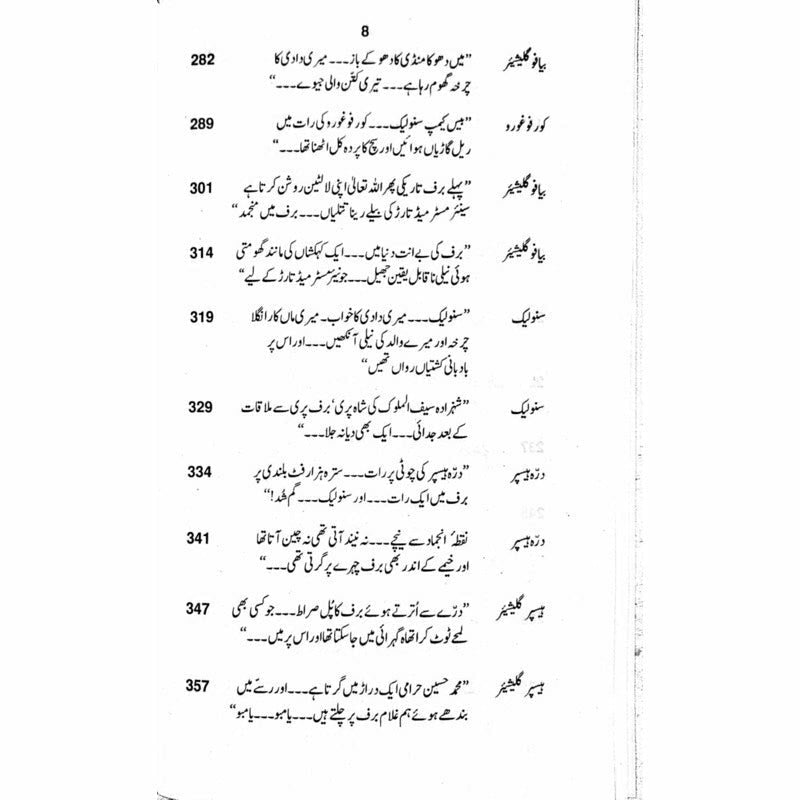 8
بیافو گلیشیئر ”میں دھوکا منڈی کا دھوکے باز۔۔۔ میری دادی کا 282
چرخہ گھوم رہا ہے۔۔۔ تیری کتن والی جیوے۔۔۔“
کورفوغورو ”بیس کیمپ سنولیک۔۔۔ کورفوغورو کی رات میں 289
ریل گاڑیاں ہوائیں اور سچ کا پردہ کل اٹھنا تھا۔۔۔“
بیافو گلیشیئر ”پہلے برف تاریکی پھر اللہ تعالیٰ اپنی لالٹین روشن کرتا ہے 301
سینئر مسٹر میڈ تارڑ کی بیلے رینا تتلیاں۔۔۔ برف میں منجمد“
بیافو گلیشیئر ”برف کی بے انت دنیا میں۔۔۔ ایک کہکشاں کی مانند گھومتی 314
ہوئی نیلی ناقابل یقین جھیل۔۔۔ جونیئر مسٹر میڈ تارڑ کے لیے“
سنولیک ”سنولیک۔۔۔ میری دادی کا خواب۔ میری ماں کا رانگلا 319
چرخہ اور میرے والد کی نیلی آنکھیں۔۔۔ اور اس پر
بادبانی کشتیاں رواں تھیں“
سنولیک ”شہزادہ سیف الملوک کی شاہ پری‘ برف پری سے ملاقات 329
کے بعد جدائی۔۔۔ ایک بھی دیا نہ جلا۔۔۔“
درّہ ہیسپر ”درّہ ہیسپر کی چوٹی پر رات۔۔۔ سترہ ہزار فٹ بلندی پر 334
برف میں ایک رات۔۔۔ اور سنولیک۔۔۔ گم شُد!“
درّہ ہیسپر نقطۂ انجماد سے نیچے۔۔۔ نہ نیند آتی تھی نہ چین آتا تھا 341
اور خیمے کے اندر بھی برف چہرے پر گرتی تھی۔۔۔“
ہیسپر گلیشیئر ”درّے سے اُترتے ہوئے برف کا پُل صراط۔۔۔ جو کسی بھی 347
لمحے ٹوٹ کر اتھاہ گہرائی میں جا سکتا تھا اور اس پر میں۔۔۔“
ہیسپر گلیشیئر ”محمد حسین حرامی ایک دراڑ میں گرتا ہے۔۔۔ اور رسّے میں 357
بندھے ہوئے ہم غلام برف پر چلتے ہیں۔۔۔ یامبو۔۔۔ یامبو“